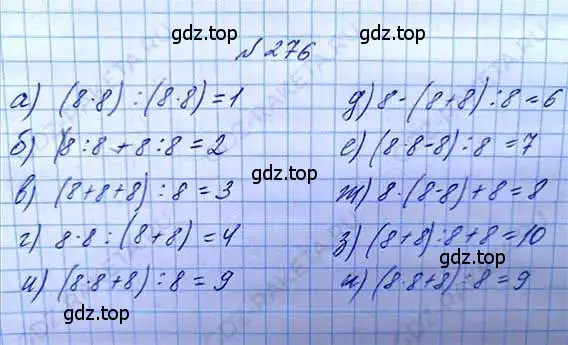 gdz.top
№ 276
gdz.top
а) (8·8) : (8·8) = 1
б) 8:8 + 8:8 = 2
в) (8+8+8) : 8 = 3
г) 8·8 : (8+8) = 4
и) (8·8+8) : 8 = 9
gdz.top
д) 8-(8+8):8=6
е) (8·8-8):8=7
ж) 8·(8-8)+8=8
з) (8+8):8+8=10
и) (8·8+8):8=9
gdz.top
gdz.top
GDZ-RAKETA.RU